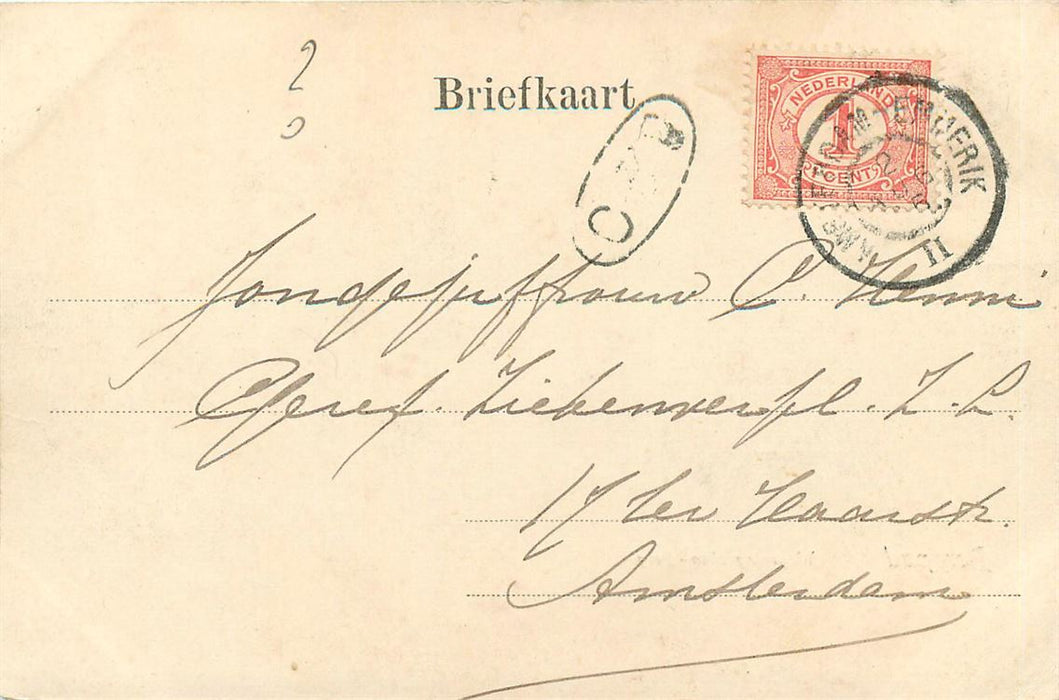 2
Briefkaart
NEDERLAND
1
1 CENT
EMMERIK
II
C
Jongejuffrouw C. Henni
Geref. Ziekenverpl. Z. L.
17 ter Haarstr.
Amsterdam